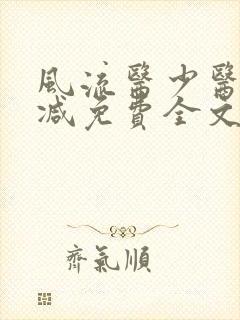 風流醫少醫
減免費全文
齊氣順